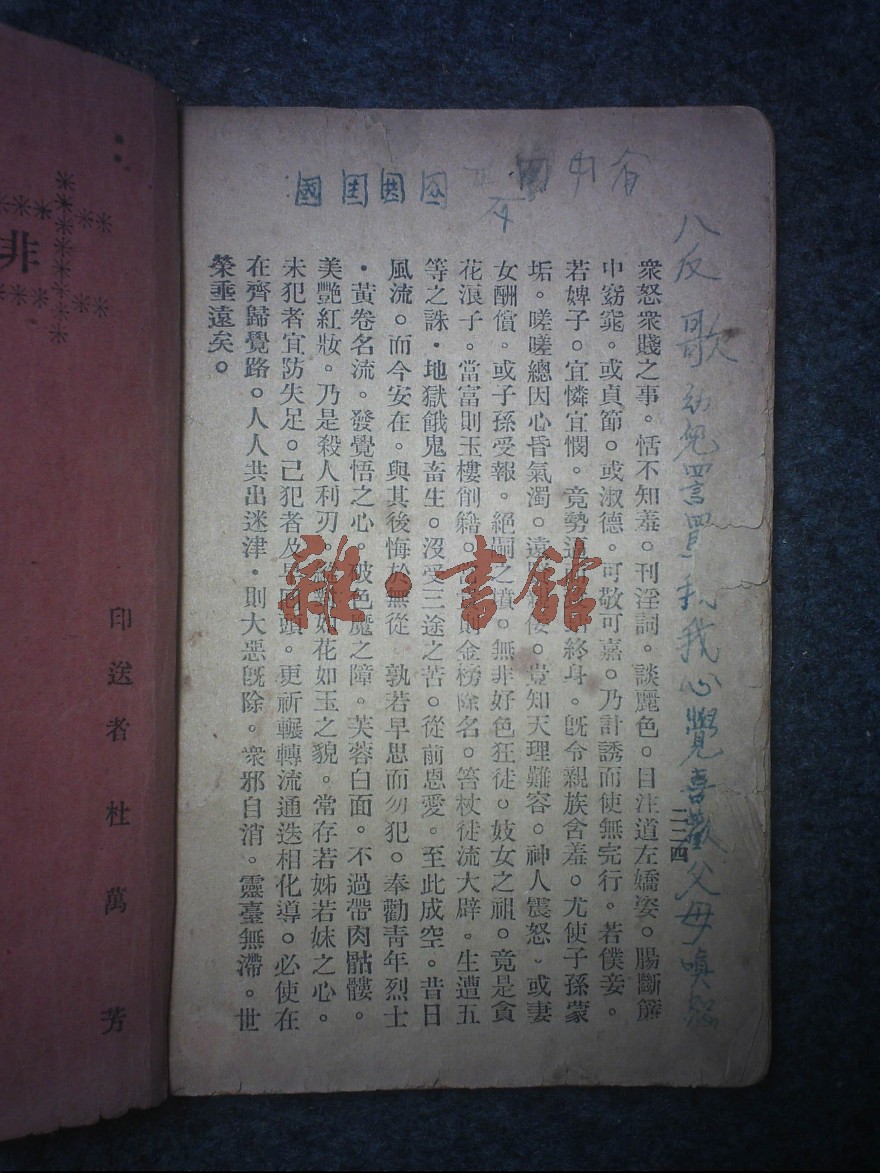 八反歌幼兒詈我我心覺喜歡父母嗔
二二四
衆怒衆賤之事。恬不知羞。刊淫詞。談麗色。目注道左嬌姿。腸斷簾
中窈窕。或貞節。或淑德。可敬可嘉。乃計誘而使無完行。若僕妾。
若婢子。宜憐宜憫。竟勢終身。旣令親族含羞。尤使子孫蒙
垢。嗟嗟總因心昏氣濁。遠豈知天理難容。神人震怒。或妻
女酬償。或子孫受報。絕嗣之墳。無非好色狂徒。妓女之祖。竟是貪
花浪子。當富則玉樓削籍。金榜除名。笞杖徒流大辟。生遭五
等之誅。地獄餓鬼畜生。沒受三途之苦。從前恩愛。至此成空。昔日
風流。而今安在。與其後悔於無從 孰若早思而勿犯。奉勸青年烈士
。黃卷名流。發覺悟之心。破色魔之障。芙蓉白面。不過帶肉骷髏。
美艷紅妝。乃是殺人利刃。如花如玉之貌。常存若姊若妹之心。
未犯者宜防失足。已犯者及早回頭。更祈輾轉流通迭相化導。必使在
在齊歸覺路。人人共出迷津。則大惡旣除。衆邪自消。靈臺無滯。世
榮垂遠矣。
雜·書館
非
印送者杜萬芳